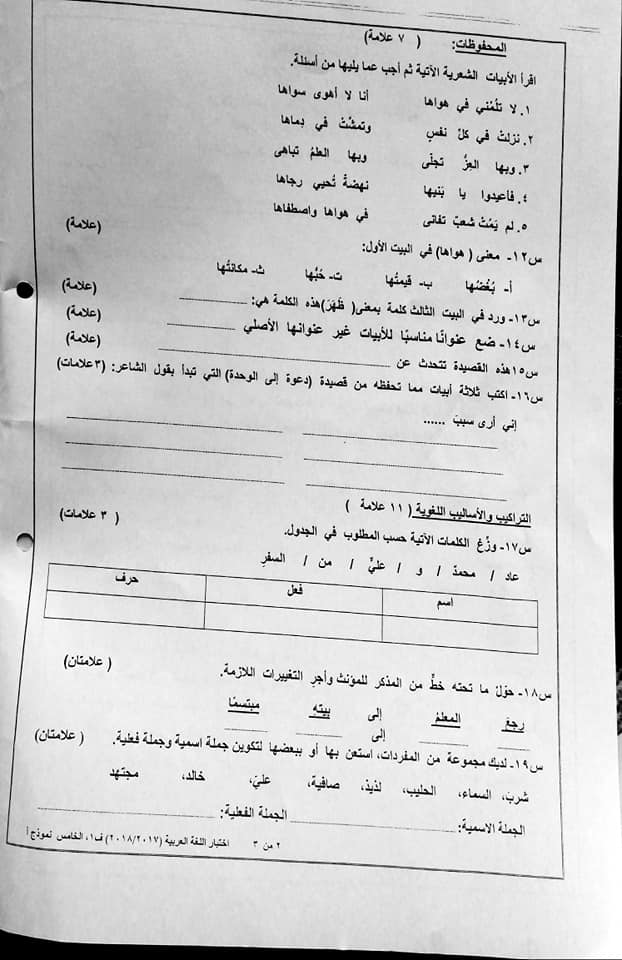 المحفوظات: ( ٧ علامة)
اقرأ الأبيات الشعرية الآتية ثم أجب عما يليها من أسئلة.
١. لا تلُمْني في هواها أنا لا أهوى سواها
٢. نزلتْ في كلّ نفسٍ وتمشّتْ في دِماها
٣. وبها العِزُّ تجلّى وبها العلمُ تباهى
٤. فأعيدوا يا بَنيها نهضةً تُحيي رجاها
٥. لم يَمُتْ شعبٌ تفانى في هواها واصطفاها
س١٢- معنى ( هواها) في البيت الأول: (علامة)
أ- بُغْضُها ب- قيمتُها ت- حُبُّها ث- مكانتُها
س١٣- ورد في البيت الثالث كلمة بمعنى( ظَهَرَ)هذه الكلمة هي: (علامة)
س١٤- ضع عنوانًا مناسبًا للأبيات غير عنوانها الأصلي (علامة)
س١٥هذه القصيدة تتحدث عن (علامة)
س١٦- اكتب ثلاثة أبيات مما تحفظه من قصيدة (دعوة إلى الوحدة) التي تبدأ بقول الشاعر: (٣علامات)
إني أرى سببَ ......
التراكيب والأساليب اللغوية ( ١١ علامة )
س١٧- وزّع الكلمات الآتية حسب المطلوب في الجدول. ( ٣ علامات)
عاد / محمدٌ / و / عليٌّ / من / السفرِ
اسم فعل حرف
س١٨- حوّل ما تحته خطٌّ من المذكر للمؤنث وأجرِ التغييرات اللازمة. ( علامتان)
رجعَ المعلمُ إلى بيتِهِ مبتسمًا
إلى
س١٩- لديك مجموعة من المفردات، استعن بها أو ببعضها لتكوين جملة اسمية وجملة فعلية. ( علامتان)
شربَ، السماء، الحليب، لذيذ، صافية، عليّ، خالد، مجتهد
الجملة الاسمية: الجملة الفعلية:
٢ من ٣ اختبار اللغة العربية (٢٠١٨/٢٠١٧) ف١، الخامس نموذج أ